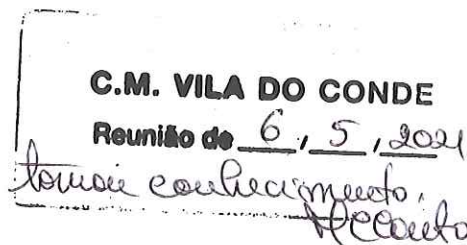 C.M. VILA DO CONDE
Reunião de 6 / 5 / 2021
tomou conhecimento.